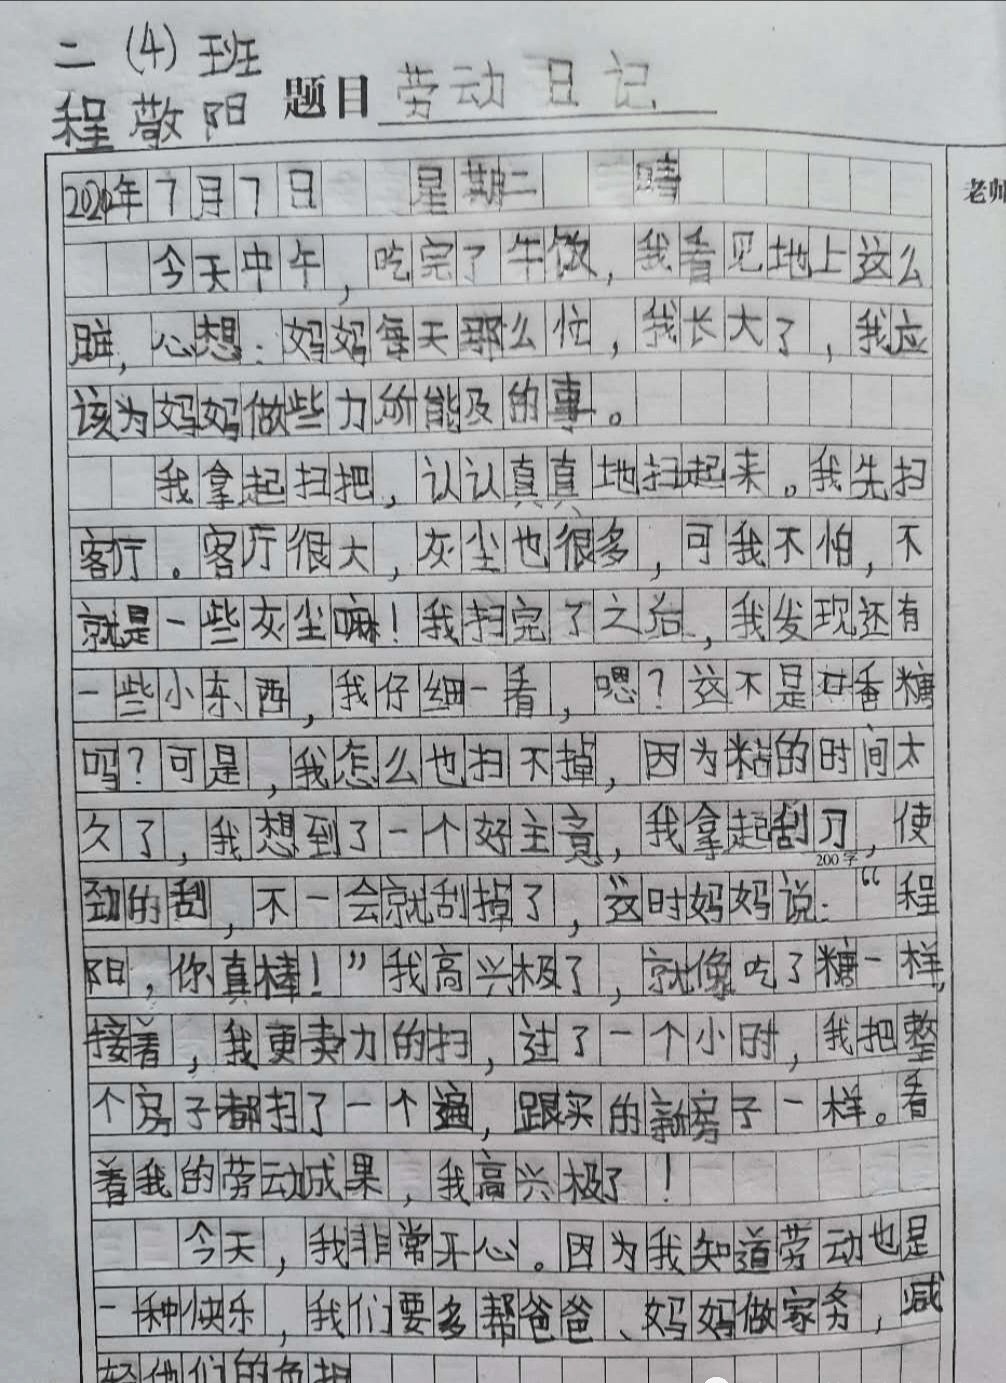 二（4）班
程敬阳
题目 劳动日记
老师
2020年7月7日 星期二 晴
今天中午，吃完了午饭，我看见地上这么
脏，心想：妈妈每天那么忙，我长大了，我应
该为妈妈做些力所能及的事。
我拿起扫把，认认真真地扫起来。我先扫
客厅。客厅很大，灰尘也很多，可我不怕，不
就是一些灰尘嘛！我扫完了之后，我发现还有
一些小东西，我仔细一看，嗯？这不是口香糖
吗？可是，我怎么也扫不掉，因为粘的时间太
久了，我想到了一个好主意，我拿起刮刀，使
200字
劲的刮，不一会就刮掉了，这时妈妈说：“程
阳，你真棒！”我高兴极了，就像吃了糖一样，
接着，我更卖力的扫，过了一个小时，我把整
个房子都扫了一个遍，跟买的新房子一样。看
着我的劳动成果，我高兴极了！
今天，我非常开心。因为我知道劳动也是
一种快乐，我们要多帮爸爸、妈妈做家务，减
轻他们的负担